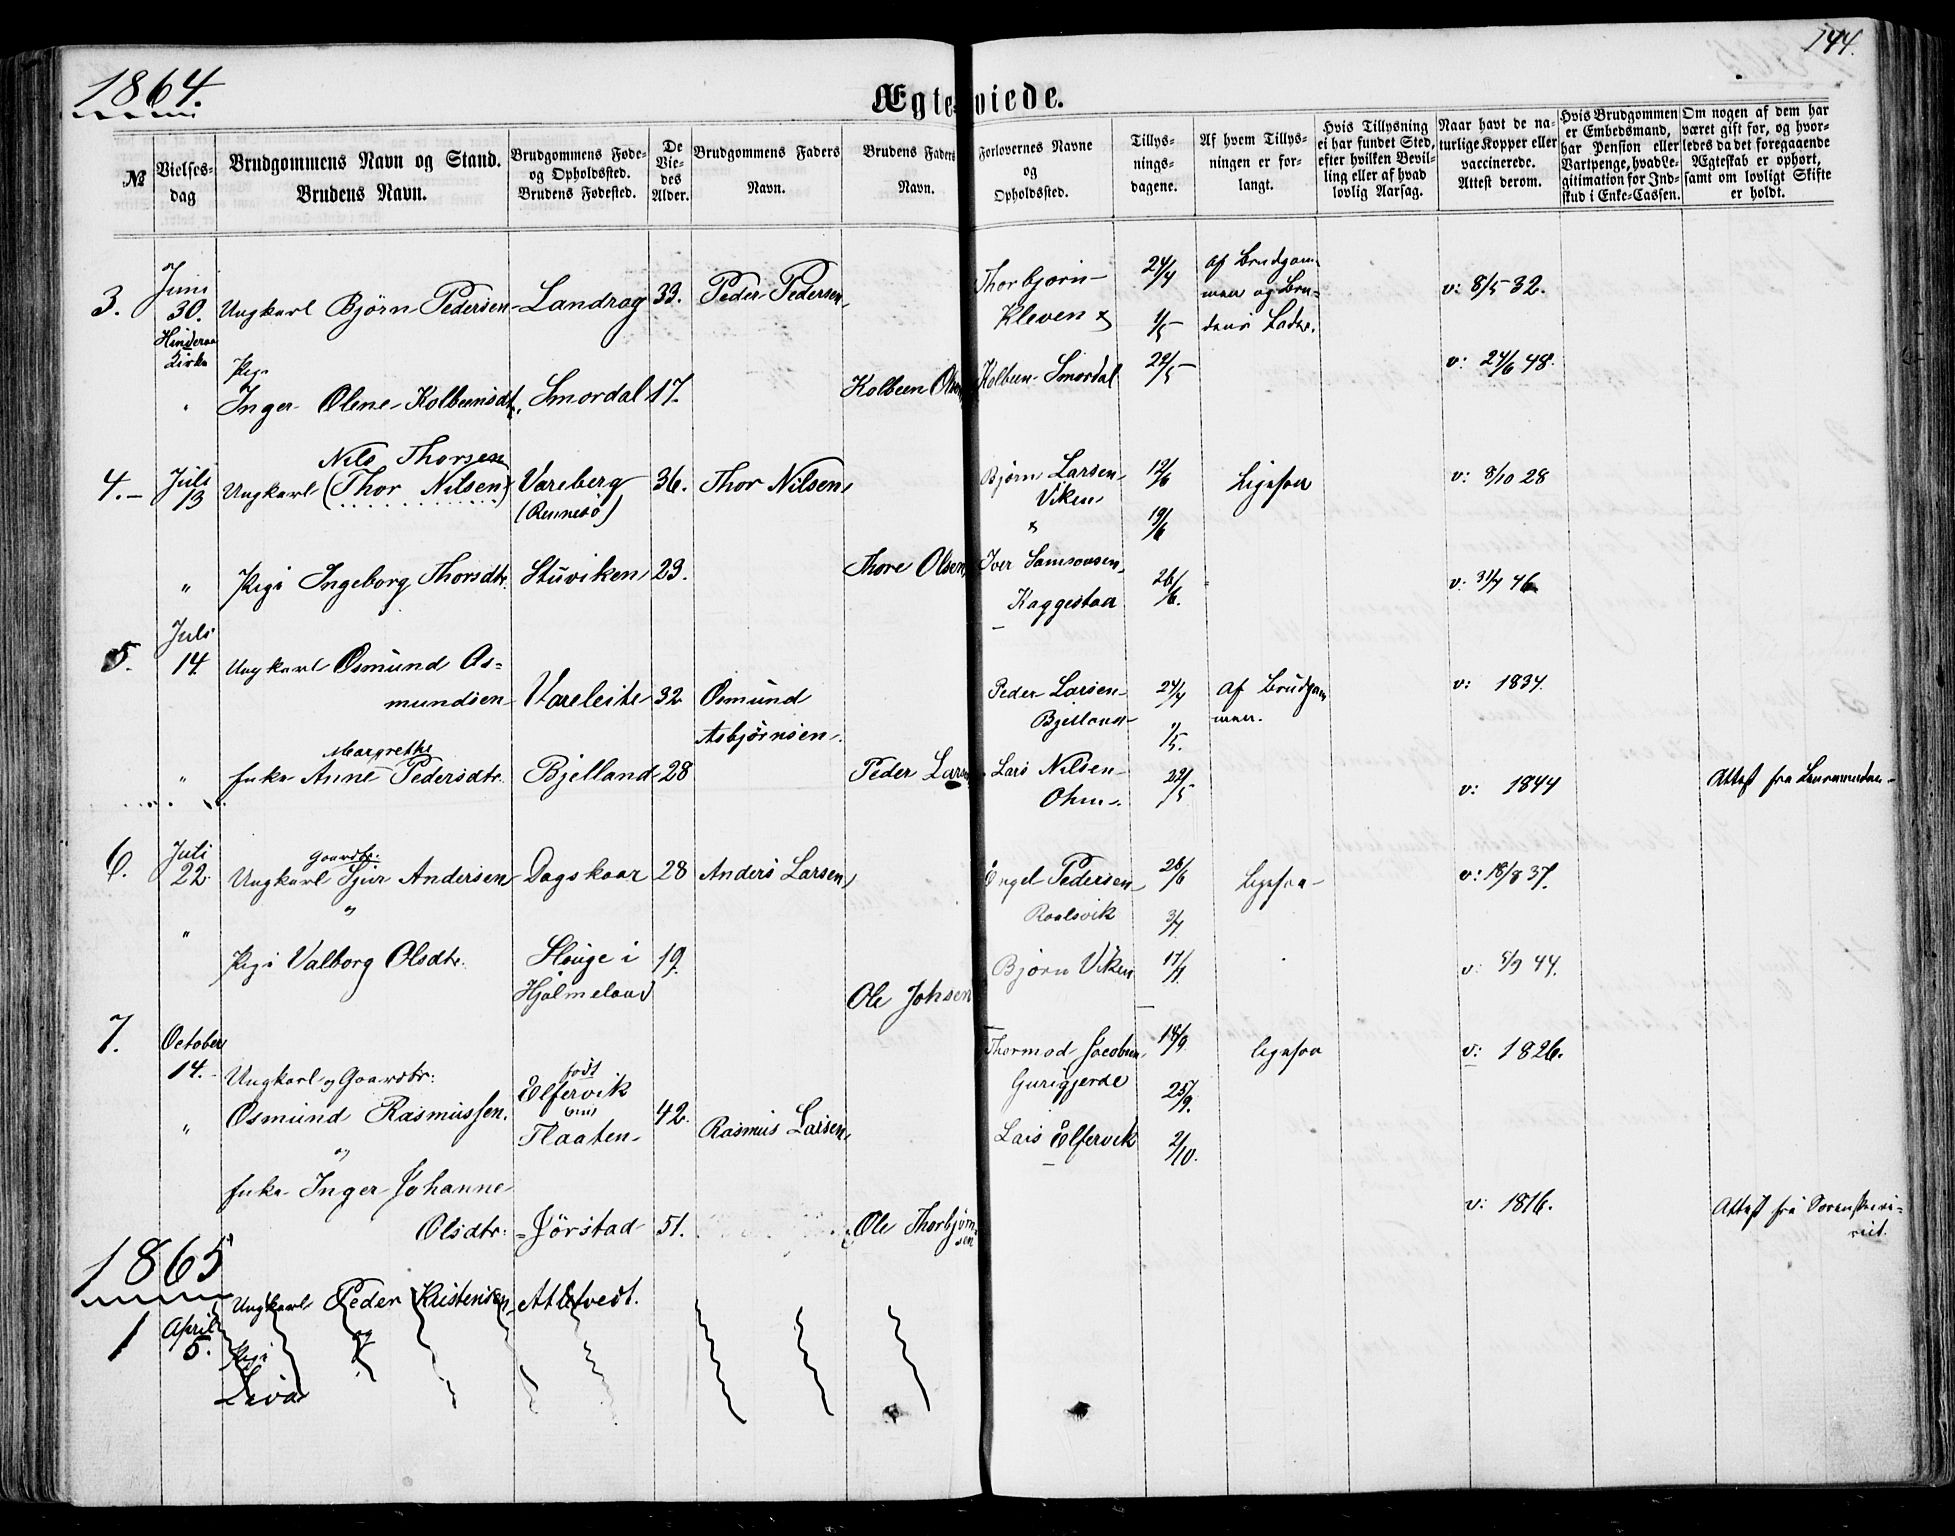 1864.
144.
Ægteviede.
№
Vielses-
dag
Brudgommens Navn og Stand.
Brudens Navn.
Brudgommens Føde-
og Opholdssted.
Brudens Fødested.
De
Vie-
des
Alder.
Brudgommens Faders
Navn.
Brudens Faders
Navn.
Forlovernes Navne
og
Opholdssted.
Tillys-
nings-
dagene.
Af hvem Tillys-
ningen er for-
langt.
Hvis Tillysning
ei har fundet Sted,
efter hvilken Bevil-
ling eller af hvad
lovlig Aarsag.
Naar havt de na-
turlige Kopper eller
vaccinerede.
Attest derom.
Hvis Brudgommen
er Embedsmand,
har Pension eller
Vartpenge, hvad Le-
gitimation for Ind-
skud i Enke-Cassen.
Om nogen af dem har
været gift før, og hvor-
ledes da det foregaaende
Ægteskab er ophørt,
samt om lovligt Skifte
er holdt.
3. Juni 30. Ungkarl Bjørn Pedersen Landrag 33. Peder Pedersen Thorbjørn Kleven 24/4 1/5 af Brudgom-
men og Bru-
dens Fader. v: 8/5 32.
Hinderaa
Kirke
" Pige
Inger Olene Kolbeinsdt. Smordal 17. Kolbeen Kolbeen Smordal 22/5 v: 24/6 48.
4. Juli 13 Ungkarl Nils Thorsen
(Thor Nilsen) Vareberg
(Rennesö) 36. Thor Nilsen Bjørn Larsen
Viken 12/6 19/6 Ligesaa v: 8/10 28
" Pige Ingeborg Thorsdtr. Stuviken 23. Thore Olsen Iver Samsonsen
Kaggestaa 26/6. v: 31/7 46
5. Juli 14. Ungkarl Osmund As-
mundsen Vareleite 32 Osmund
Asbjørnsen Peder Larsen
Bjelland 24/4 1/5. af Brudgom
men. v: 1834.
" Enke Anne Margrethe Pedersdtr. Bjelland 28 Peder Lars Nilsen
Ohm 22/5 v: 1844 Attest fra
6. Juli 22 Ungkarl Gaardbr. Sjur Andersen Dagskaar 28 Anders Larsen Engel Pedersen
Roalsvik 26/6 3/7. Ligesaa v: 18/8 37.
"
" Pige Valborg Olsdtr. i
Hjelmeland 19. Ole Johsen Bjørn Viken 17/7. v: 44.
7. October 14. Ungkarl og Gaardbr:
Osmund Rasmussen. født
Elfervik
Flaaten 42. Rasmus Larsen Thormod Jacobsen
Gurigjerde
Lars Elfervik 18/9 25/9. 2/10. ligesaa v: 1826.
"
og
Enke Inger Johanne
Olsdtr: Jörstad 51. Ole Thorbjørn-
sen v: 1816. Attest fra Sorenskri-
1865
1 April 5. Ungkarl Peder Kristensen
og
Pige
Siva